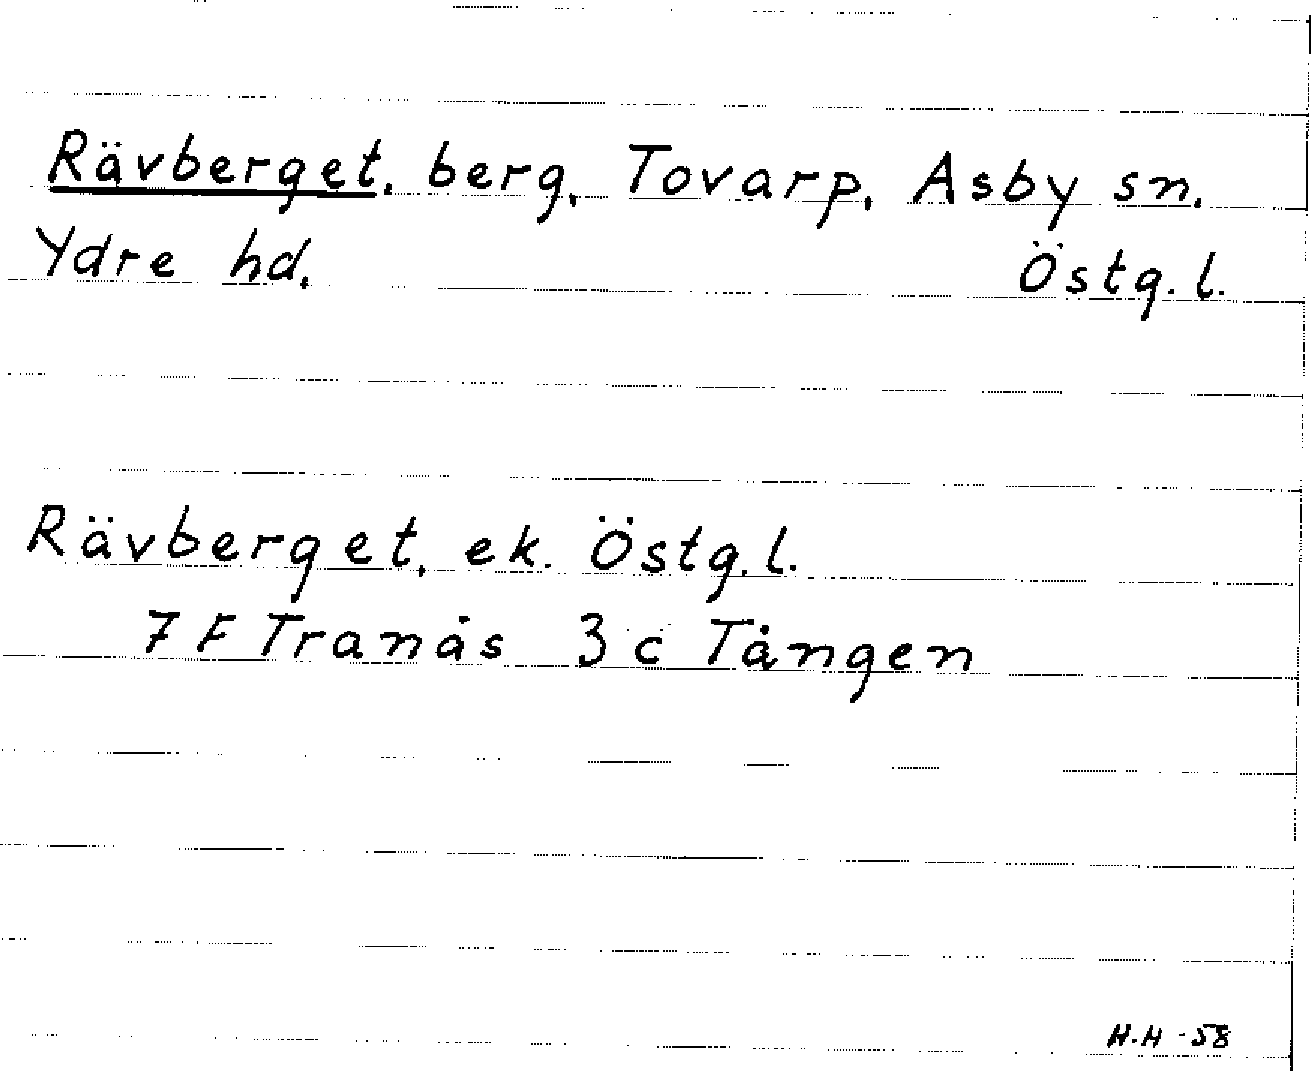 Rävberget, berg, Tovarp, Asby sn.
Ydre hd. Östg. l.
Rävberget, ek. Östg. l.
7 F Tranås 3 c Tången
H.H -58